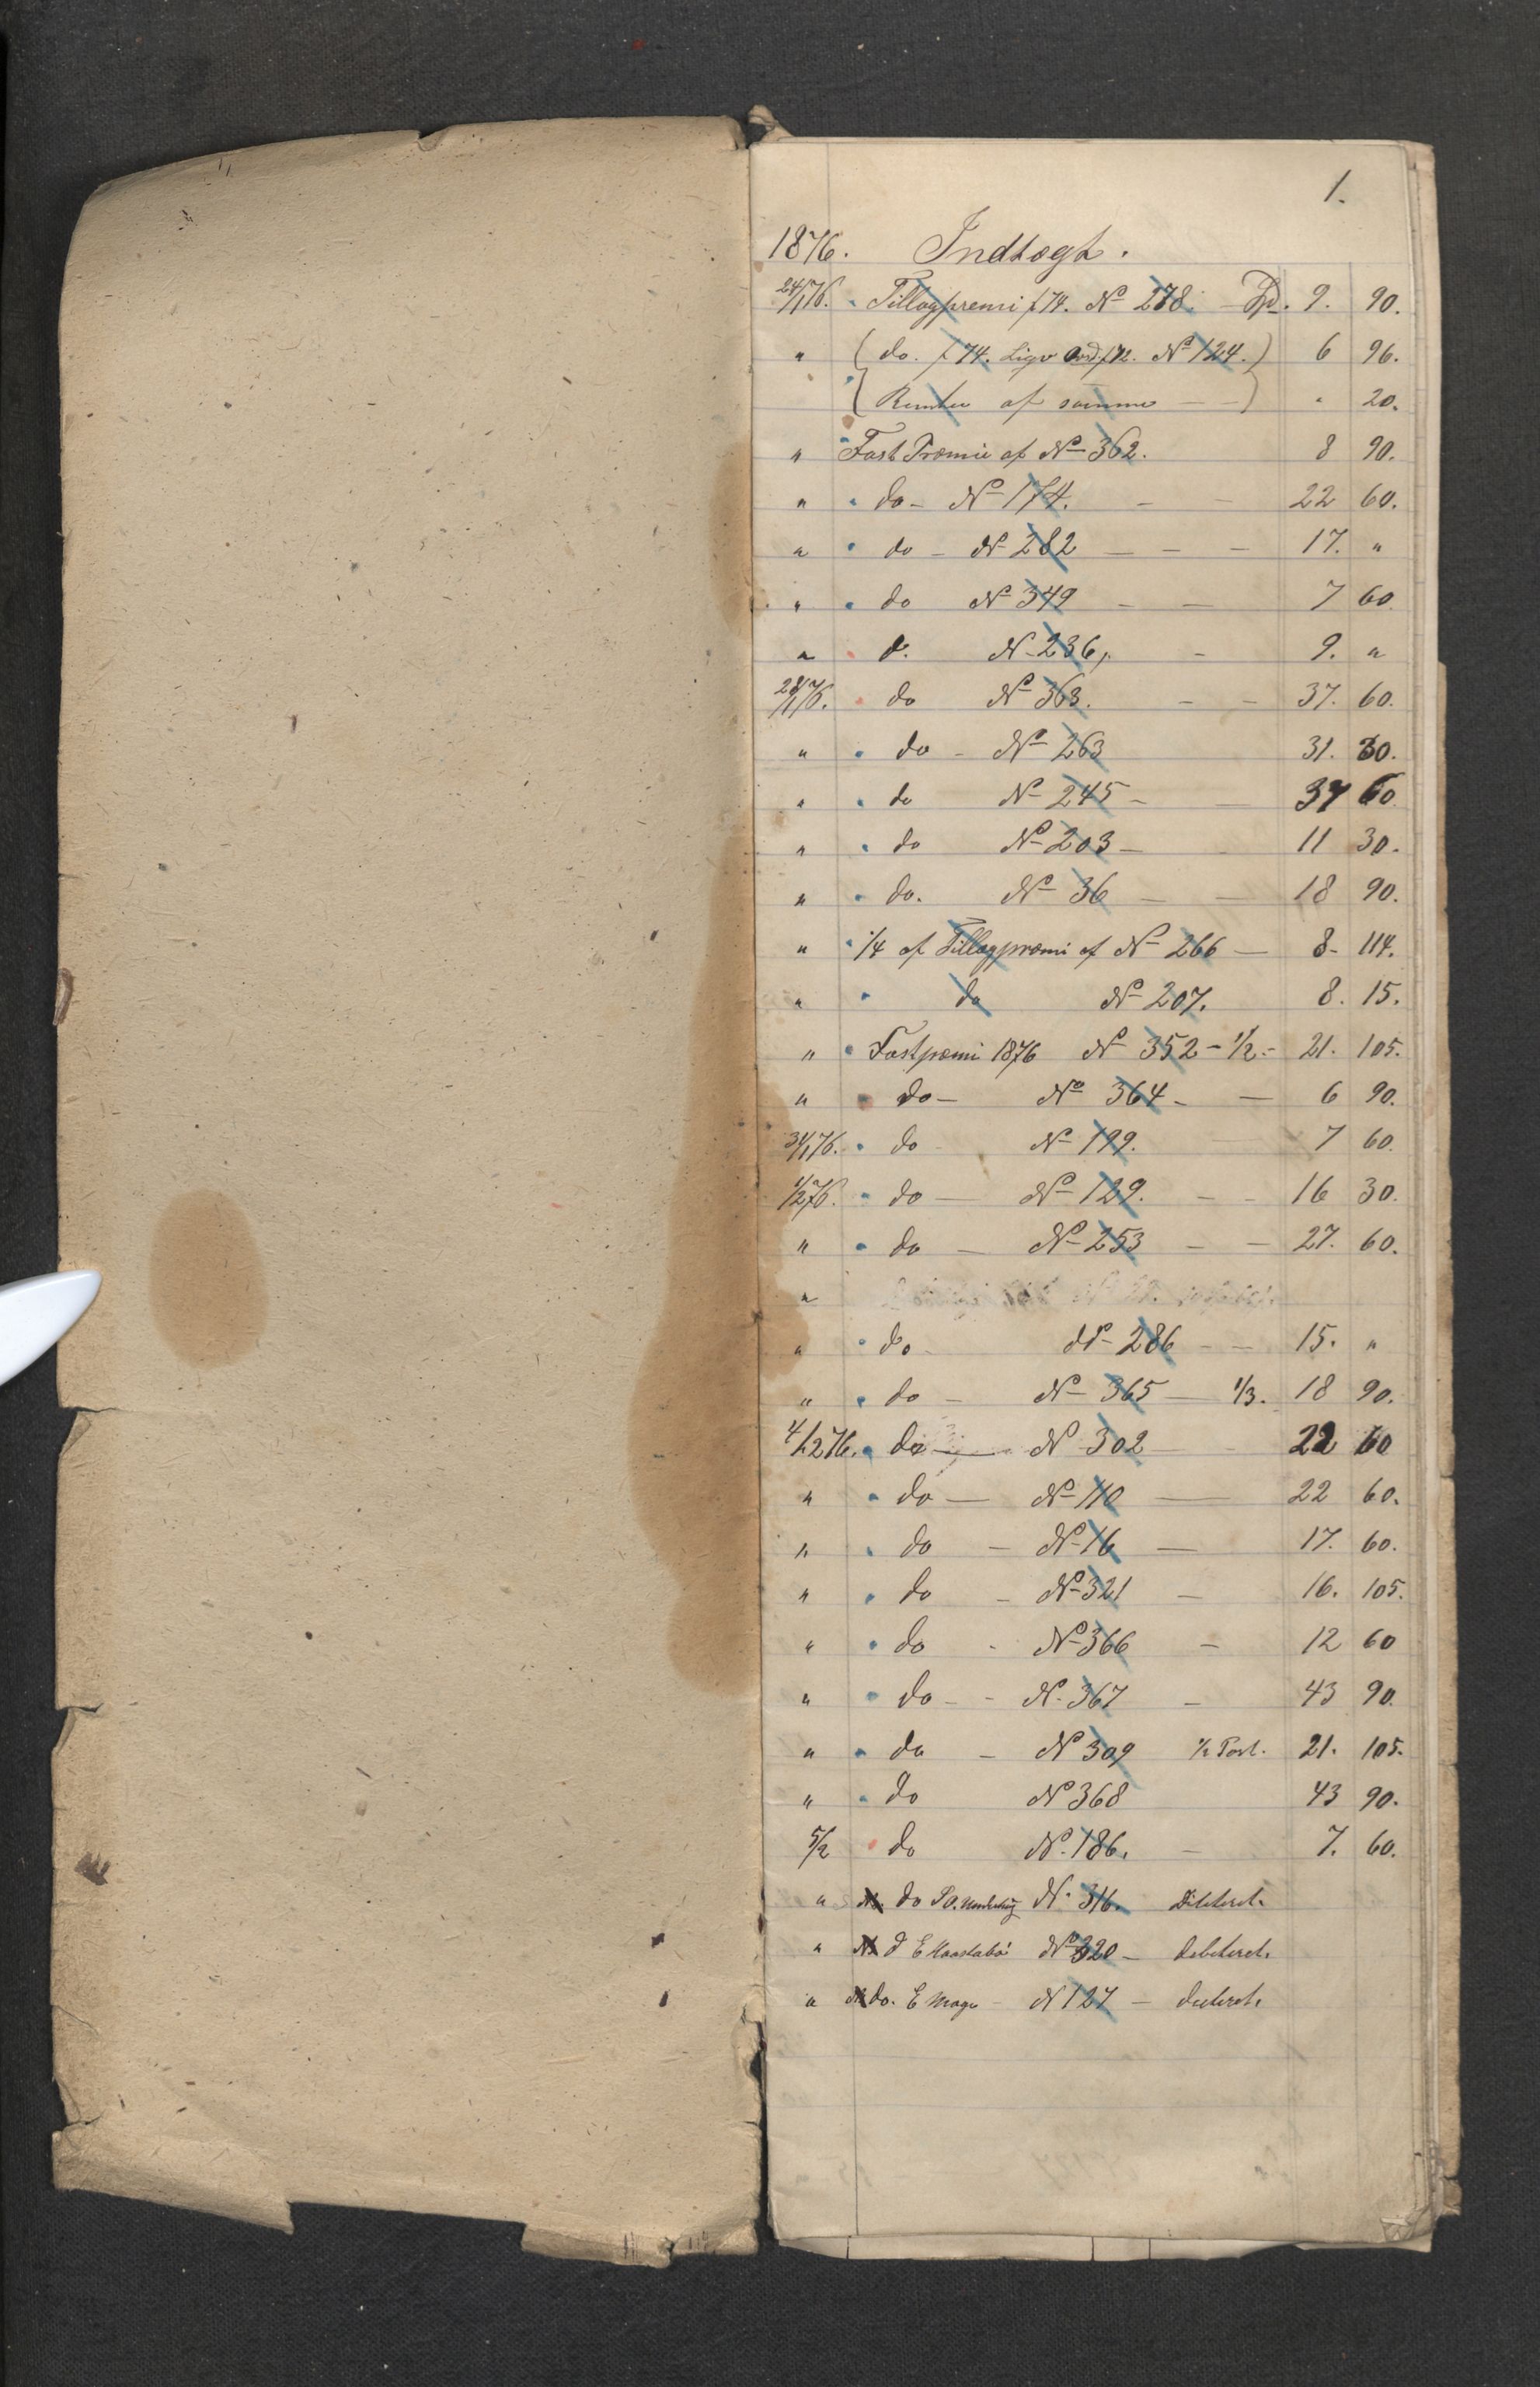 1.
1876. Indtægt.
24/1 76. Tillægpremi f 74. No 278. — Spd. 9. 90.
" (do. f 74. Ligv Ord. f 72. No 124.) 6 96.
(Renter af samme — —) " 20.
" Fast Præmie af No 362. 8 90.
" do — No 174. — — 22 60.
" do — No 282 — — — 17. "
" do No 349 — — 7 60
" d. No 236, — 9. "
28/1 76. do No 363. — — 37. 60.
" do — No 263 31. 30.
" do No 245 — — 37 60
" do No 203 — 11 30.
" do. No 36 — — 18 90.
" 1/4 af Tillægpræmi af No 266 — 8 - 114.
" do No 207. 8. 15.
" Fastpræmi 1876 No 352 - 1/2 - 21. 105.
" do — No 364 — — 6 90.
31/1 76. do No 199. 7 60
1/2 76. do — No 129. — — 16 30.
" do — No 253 — — 27. 60.
"
" do — No 286 — — 15. "
" do — No 365 — 1/3. 18 90.
4/2 76. do — No 302 22 60
" do — No 110 — 22 60.
" do — No 16 — 17. 60.
" do — No 321 — 16. 105.
" do - No 366 — 12 60
" do - - No. 367 — 43 90.
" do — No 309 1/2 Part. 21. 105.
" do No 368 43 90.
5/2 do No. 186. — 7. 60.
" do No. 316. Debiteret.
" d No 320 — debiteret.
" do. E No 127 —